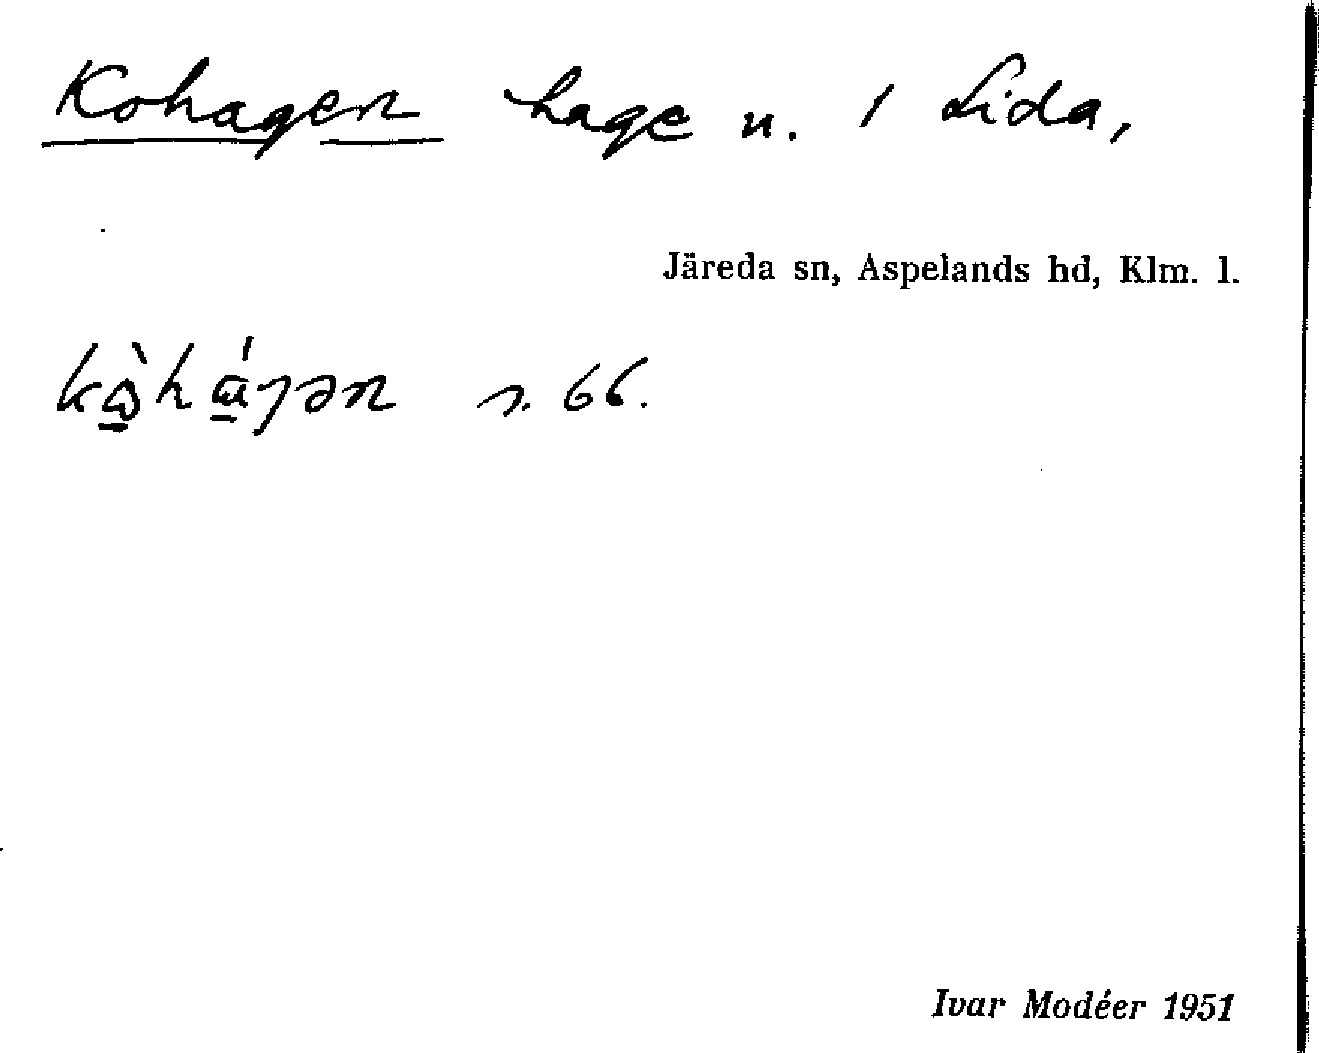 Kohagen hage n. 1 Lida,
Järeda sn, Aspelands hd, Klm. l.
s. 66.
Ivar Modéer 1951